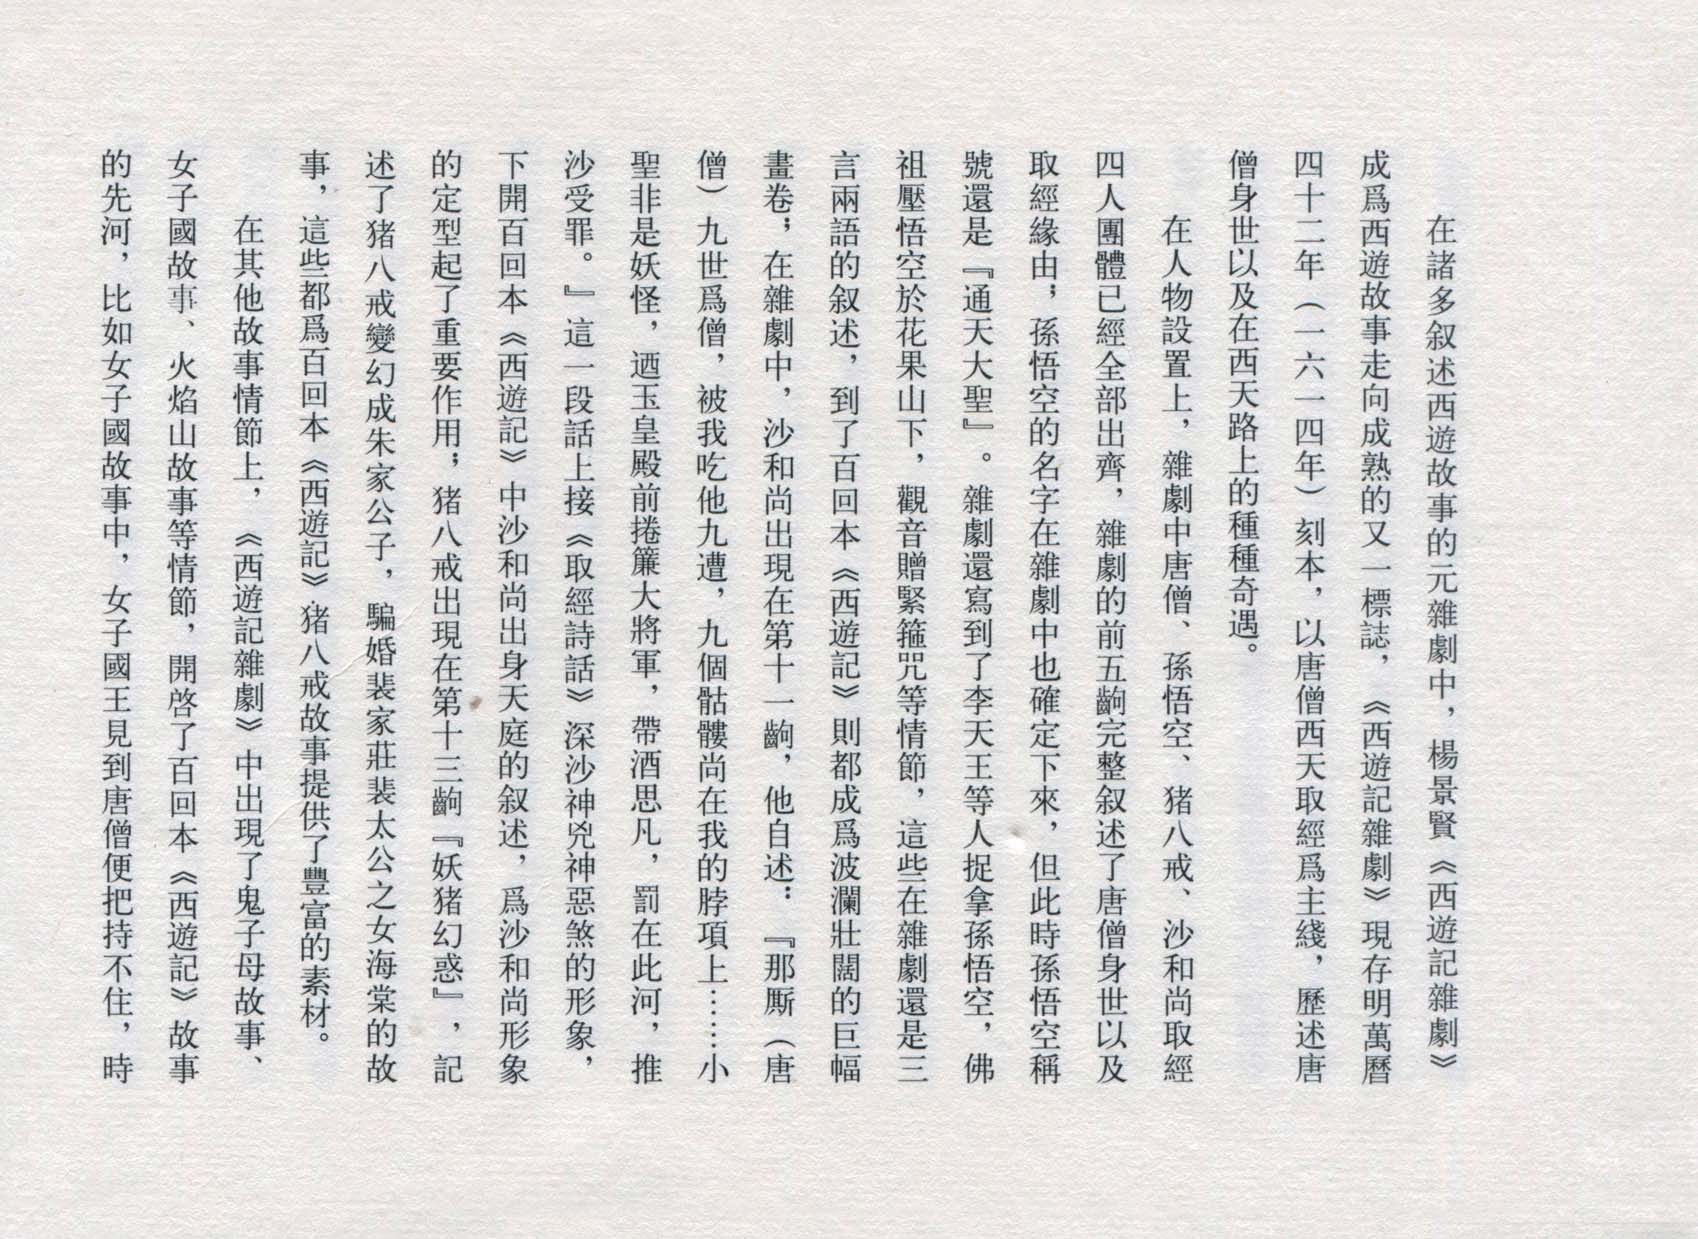 在諸多叙述西遊故事的元雜劇中，楊景賢《西遊記雜劇》
成爲西遊故事走向成熟的又一標誌，《西遊記雜劇》現存明萬曆
四十二年（一六一四年）刻本，以唐僧西天取經爲主綫，歷述唐
僧身世以及在西天路上的種種奇遇。
在人物設置上，雜劇中唐僧、孫悟空、猪八戒、沙和尚取經
四人團體已經全部出齊，雜劇的前五齣完整叙述了唐僧身世以及
取經緣由；孫悟空的名字在雜劇中也確定下來，但此時孫悟空稱
號還是『通天大聖』。雜劇還寫到了李天王等人捉拿孫悟空，佛
祖壓悟空於花果山下，觀音贈緊箍咒等情節，這些在雜劇還是三
言兩語的叙述，到了百回本《西遊記》則都成爲波瀾壯闊的巨幅
畫卷；在雜劇中，沙和尚出現在第十一齣，他自述：『那厮（唐
僧）九世爲僧，被我吃他九遭，九個骷髏尚在我的脖項上……小
聖非是妖怪，迺玉皇殿前捲簾大將軍，帶酒思凡，罰在此河，推
沙受罪。』這一段話上接《取經詩話》深沙神兇神惡煞的形象，
下開百回本《西遊記》中沙和尚出身天庭的叙述，爲沙和尚形象
的定型起了重要作用；猪八戒出現在第十三齣『妖猪幻惑』，記
述了猪八戒變幻成朱家公子，騙婚裴家莊裴太公之女海棠的故
事，這些都爲百回本《西遊記》猪八戒故事提供了豐富的素材。
在其他故事情節上，《西遊記雜劇》中出現了鬼子母故事、
女子國故事、火焰山故事等情節，開啓了百回本《西遊記》故事
的先河，比如女子國故事中，女子國王見到唐僧便把持不住，時